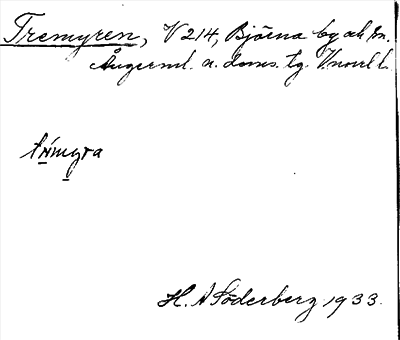 Tremyren, V 214, Björna by ah sn.
Ångerml. n. doms. tg. Vnorrl. l.
trímyra
H. A Söderberg 1933.